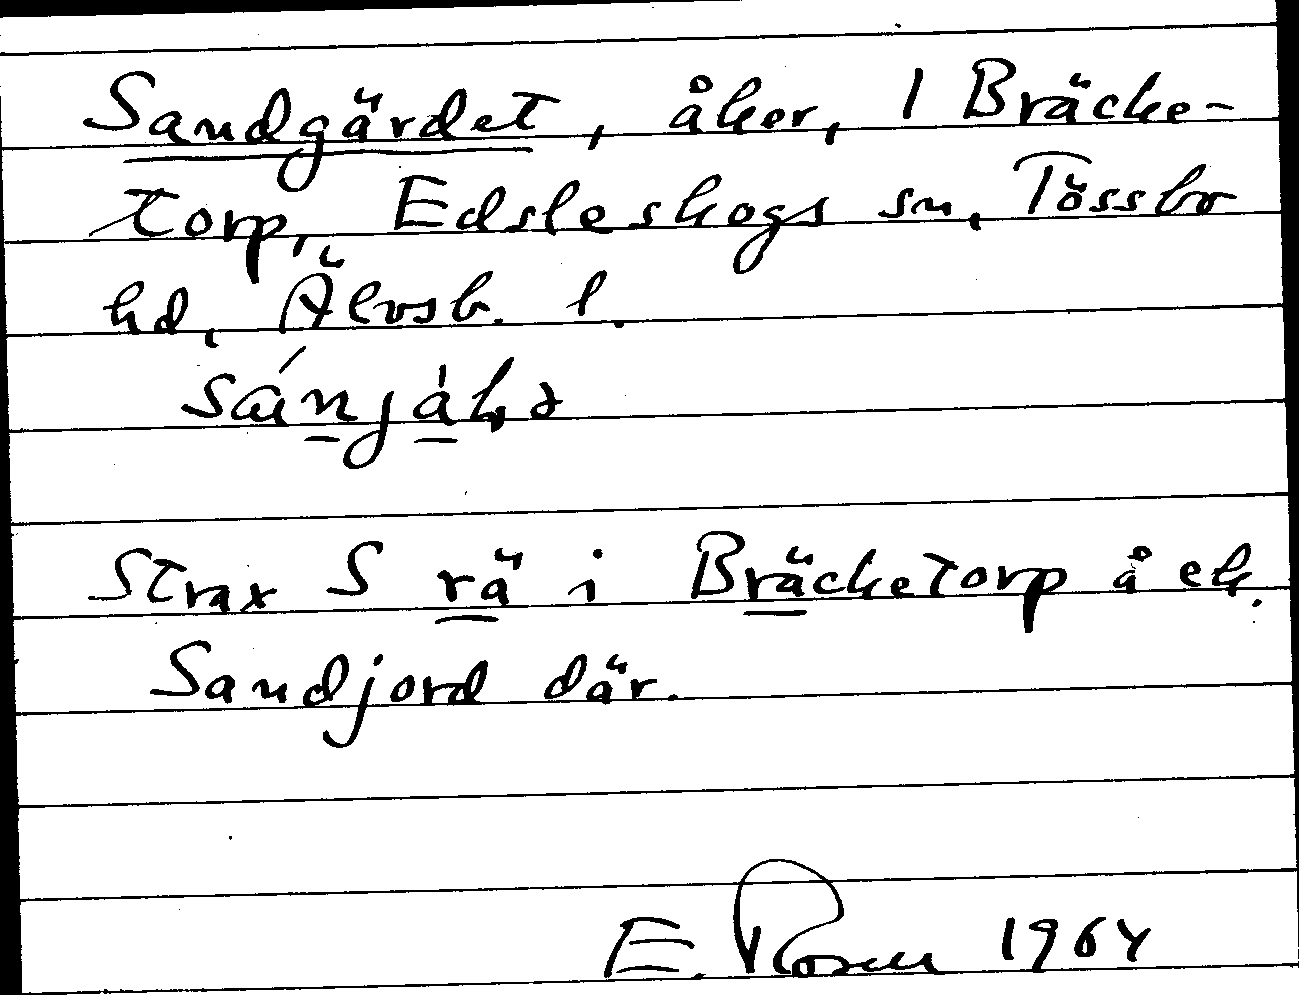 Sandgärdet, åker, 1 Bräcke-
torp, Edsleskogs sn, Tössbo
hd, Älvsb. l.
Strax S rä i Bräcketorp å ek.
Sandjord där.
E. Rosen 1964